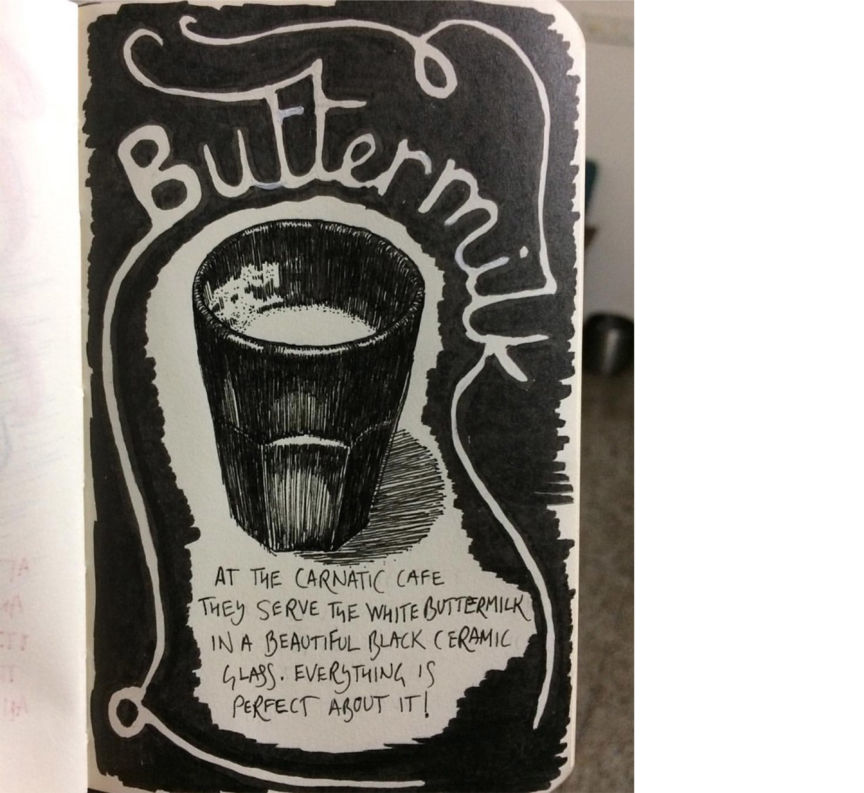 Buttermilk
AT THE CARNATIC CAFE
THEY SERVE THE WHITE BUTTERMILK
IN A BEAUTIFUL BLACK CERAMIC
GLASS. EVERYTHING IS
PERFECT ABOUT IT!